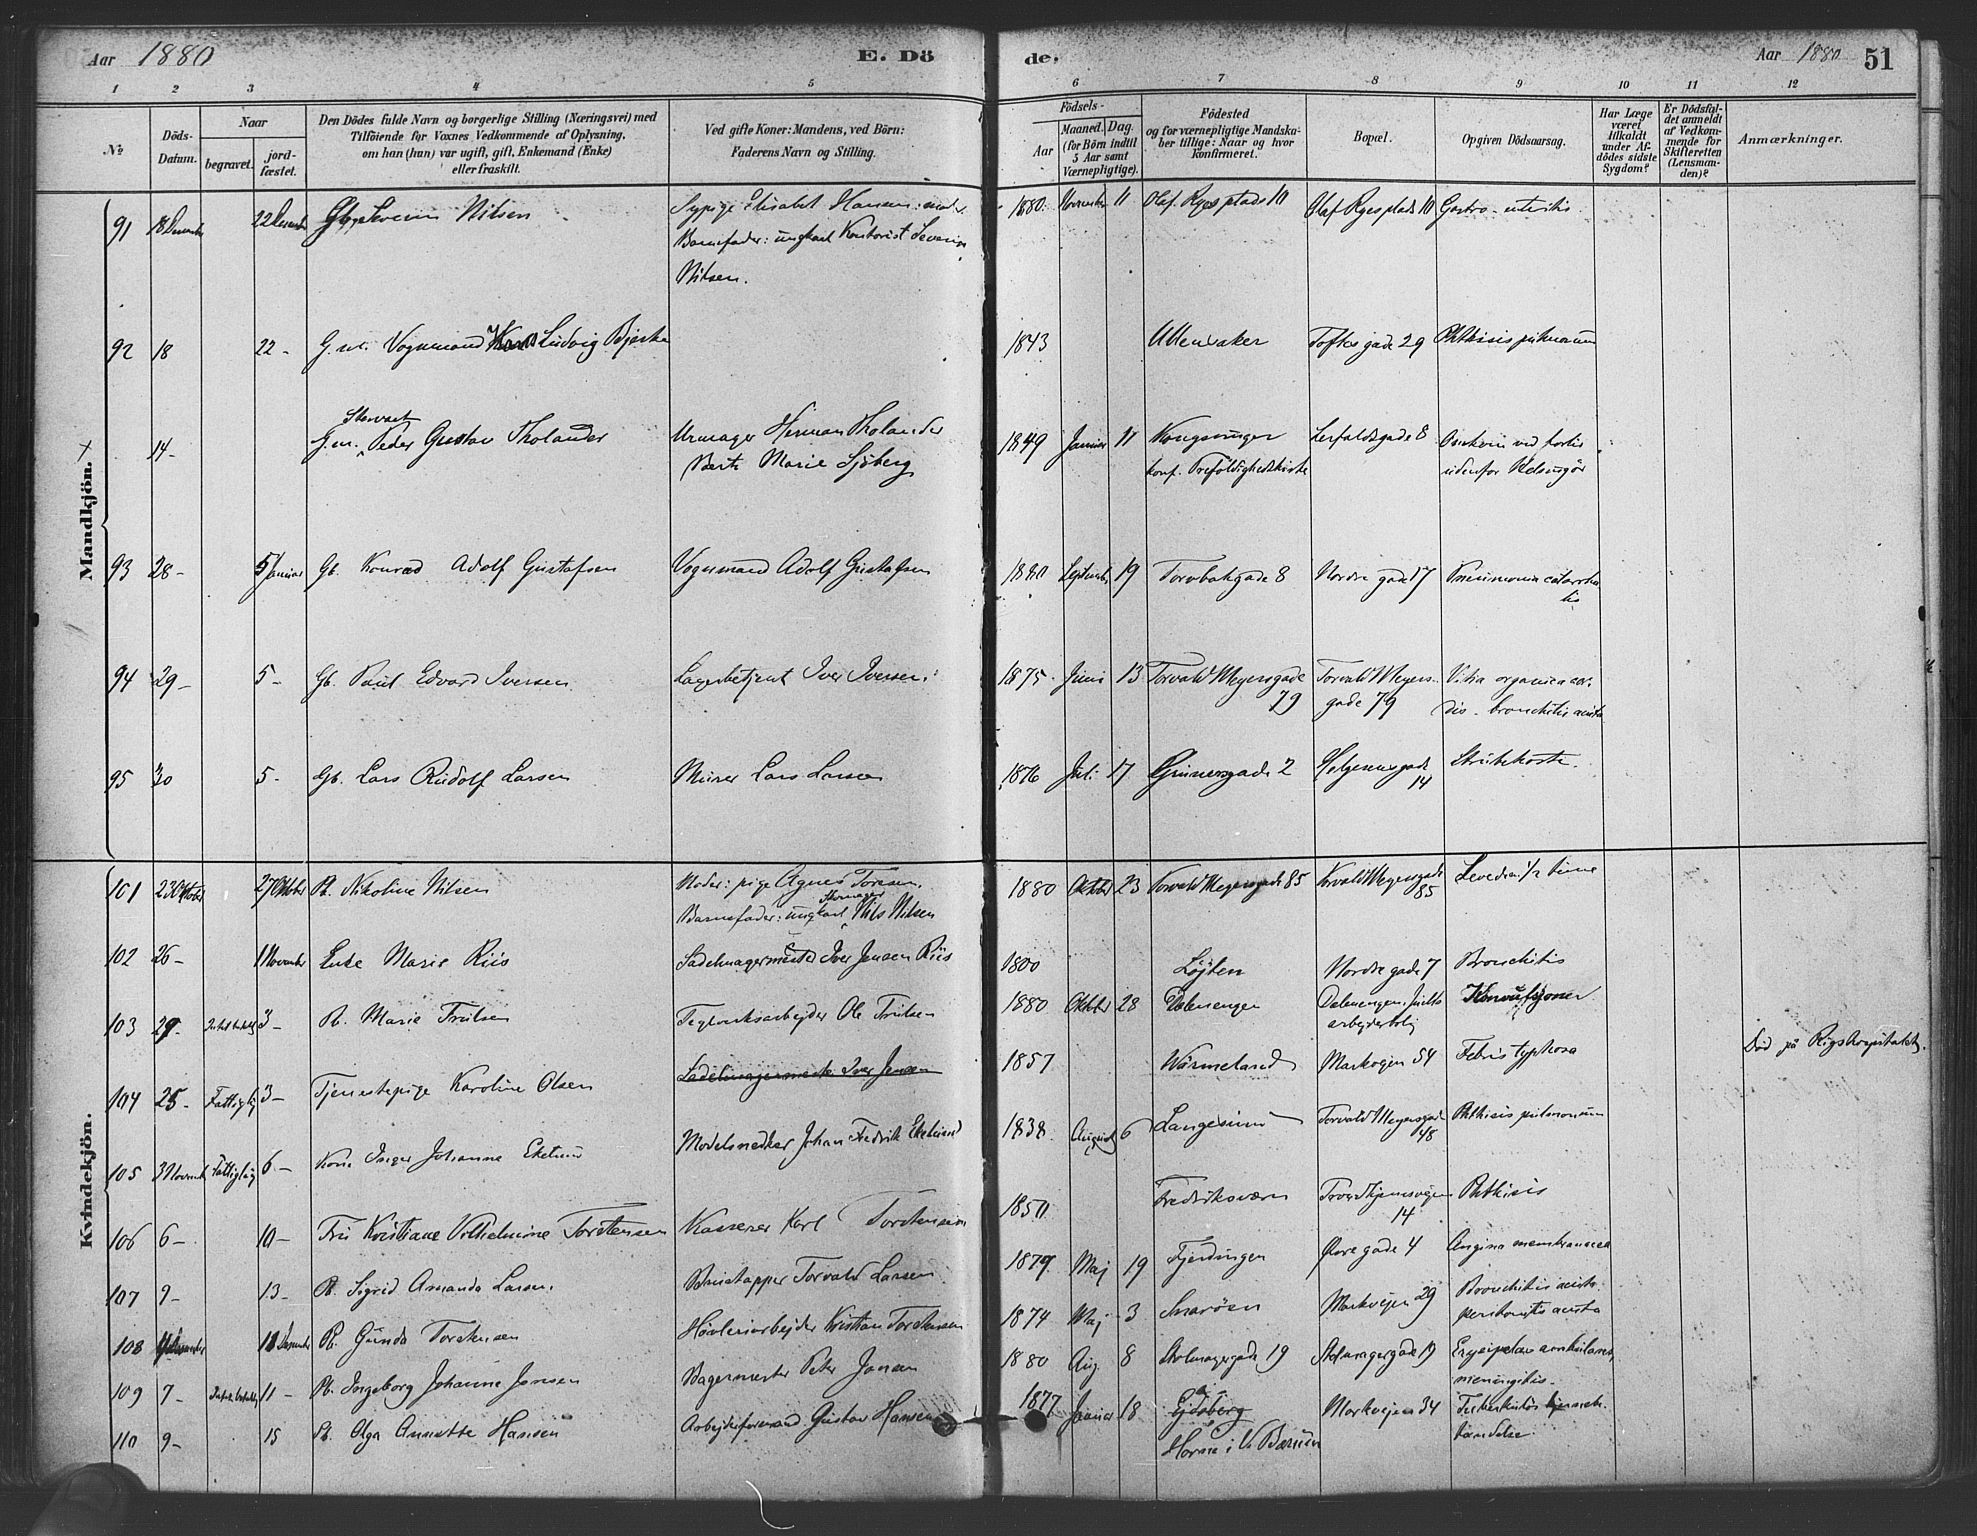 Aar 1880 E. Dö
de. Aar 1880 51
1 2 3 4 5 6 7 8 9 10 11 12
№
Döds-
Datum.
Naar
begravet.
jord-
fæstet.
Den Dödes fulde Navn og borgerlige Stilling (Næringsvei) med
Tilföiende for Voxnes Vedkommende af Oplysning,
om han (hun) var ugift, gift, Enkemand (Enke)
eller fraskilt.
Ved gifte Koner: Mandens, ved Börn:
Faderens Navn og Stilling.
Födsels-
Aar
Maaned.
Dag.
(for Börn indtil
5 Aar samt
Værnepligtige).
Födested
og for værnepligtige Mandska-
ber tillige: Naar og hvor
konfirmeret.
Bopæl.
Opgiven Dödsaarsag.
Har Læge
været
tilkaldt
under Af-
dödes sidste
Sygdom?
Er Dödsfal-
det anmeldt
af Vedkom-
mende for
Skifteretten
(Lensman-
den)?
Anmærkninger.
Mandkjön.
91 18 December 22 December Severin Nilsen Sypige Elisabet Hansen 1880 November 11 Olaf Ryes plads 10 Olaf Ryes plads 10 Gastro-
Barnefader: ungkarl Kontorist Severin
Nilsen.
92 18 22 - G.m. Vognmand Ludvig Bjerke 1843 Ullensaker Toftes gade 29 Phthisis pulmonum
14 - G.m. Peder Gustav Tholander Urmager Herman Tholander 1849 Januar 11 Kongsvinger Lerfaldsgade 8
Marie Sjöberg konf. Trefoldighedskirke udenfor Helsingör
93 28 - 5 Januar Gb. Konrad Adolf Gustafsen Vognmand Adolf Gustafsen 1880 September 19 Torvbakgade 8 Nordre gade 17 Pneumonia catarrha
lis
94 29 - 5 - Gb. Paul Edvard Iversen Lagerbetjent Iver Iversen 1875 Juni 13 Torvald Meyersgade Torvald Meyers- Vitia organica cor-
79 gade 79 dis - bronchitis acuta
95 30 5 - Gb. Lars Rudolf Larsen Murer Lars Larsen 1876 Juli 17 Grünersgade 2 Helgesensgade Strubehoste.
14
Kvindekjön.
101 23 Oktober 27 Oktober Pb. Nikoline Nilsen Moder: pige Agnes 1880 Oktober 23 Torvald Meyersgade 85 Torvald Meyersgade Levede 1/2 time
Barnefader: ungkarl Nils Nilsen 85
102 26 - 1 November Enke Marie Riis Sadelmagermester Iver Jensen Riis 1800 Löjten Nordre gade 7 Bronchitis
103 29 - 3 - Pb. Marie Trulsen Teglverksarbejder Ole Trulsen 1880 Oktober 28 Dalenengen Dalenengen,
arbejderbolig
104 25 - Fattiglig 3 - Tjenestepige Karoline Olsen Sadelmagermester Iver Jensen 1857 Wärmeland Markvejen 54 Febris typhosa Död på Rigshospitalet.
105 3 November Fattiglig 6 - Kone Inger Johanne Ekelund Modelsnedker Johan Fredrik Ekelund 1838 August 6 Langesund Torvald Meyersgade Phthisis pulmonum
48
106 6 - 10 - Fru Kristiane Vilhelmine Torstensen Kasserer Karl Torstensen 1850 Fredriksværn Trondhjemsvejen Phthisis
14
107 9 - 13 - Pb. Sigrid Amanda Larsen Torvald Larsen 1879 Maj 19 Fjerdingen Övre gade 4 Angina membranacea
108 11 December Pb. Gunda Torstensen Hövleriarbejder Kristian Torstensen 1874 Maj 3 Snaröen Markvejen 29 Bronchitis acuta.
peritonitis acuta
109 7 - 11 - Pb. Ingeborg Johanne Jansen Bagermester Peter Jansen 1880 Aug. 8 Stolmagergade 19 Stolmagergade 19 Erysipelas ambulans,
meningitis.
110 9 - 15 Pb. Aga Annette Hansen Arbejdsformand Gustav Hansen 1877 Januar 18 Ejdsberg Markvejen 34